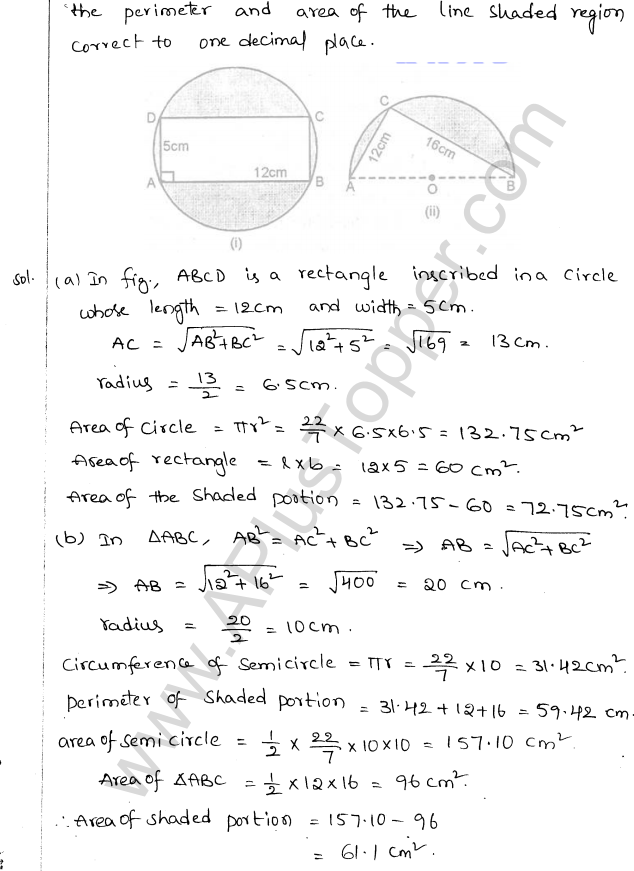 the perimeter and area of the line shaded region
correct to one decimal place.
D C
5cm
12cm
A B
(i)
C
12cm 16cm
A O B
(ii)
Sol. (a) In fig., ABCD is a rectangle inscribed in a circle
whose length = 12cm and width = 5cm.
AC = √AB²+BC² = √12²+5² = √169 = 13cm.
radius = 13/2 = 6.5cm.
Area of Circle = πr² = 22/7 × 6.5×6.5 = 132.75cm²
Area of rectangle = l×b = 12×5 = 60 cm².
Area of the Shaded portion = 132.75-60 = 72.75cm².
(b) In ΔABC, AB² = AC²+BC² ⇒ AB = √AC²+BC²
⇒ AB = √12²+16² = √400 = 20 cm.
radius = 20/2 = 10cm.
Circumference of Semicircle = πr = 22/7 ×10 = 31.42cm².
perimeter of shaded portion = 31.42+12+16 = 59.42 cm.
area of semicircle = 1/2 × 22/7 ×10×10 = 157.10 cm².
Area of ΔABC = 1/2 ×12×16 = 96cm².
∴ Area of shaded portion = 157.10-96
= 61.1 cm².
www.APlusTopper.com